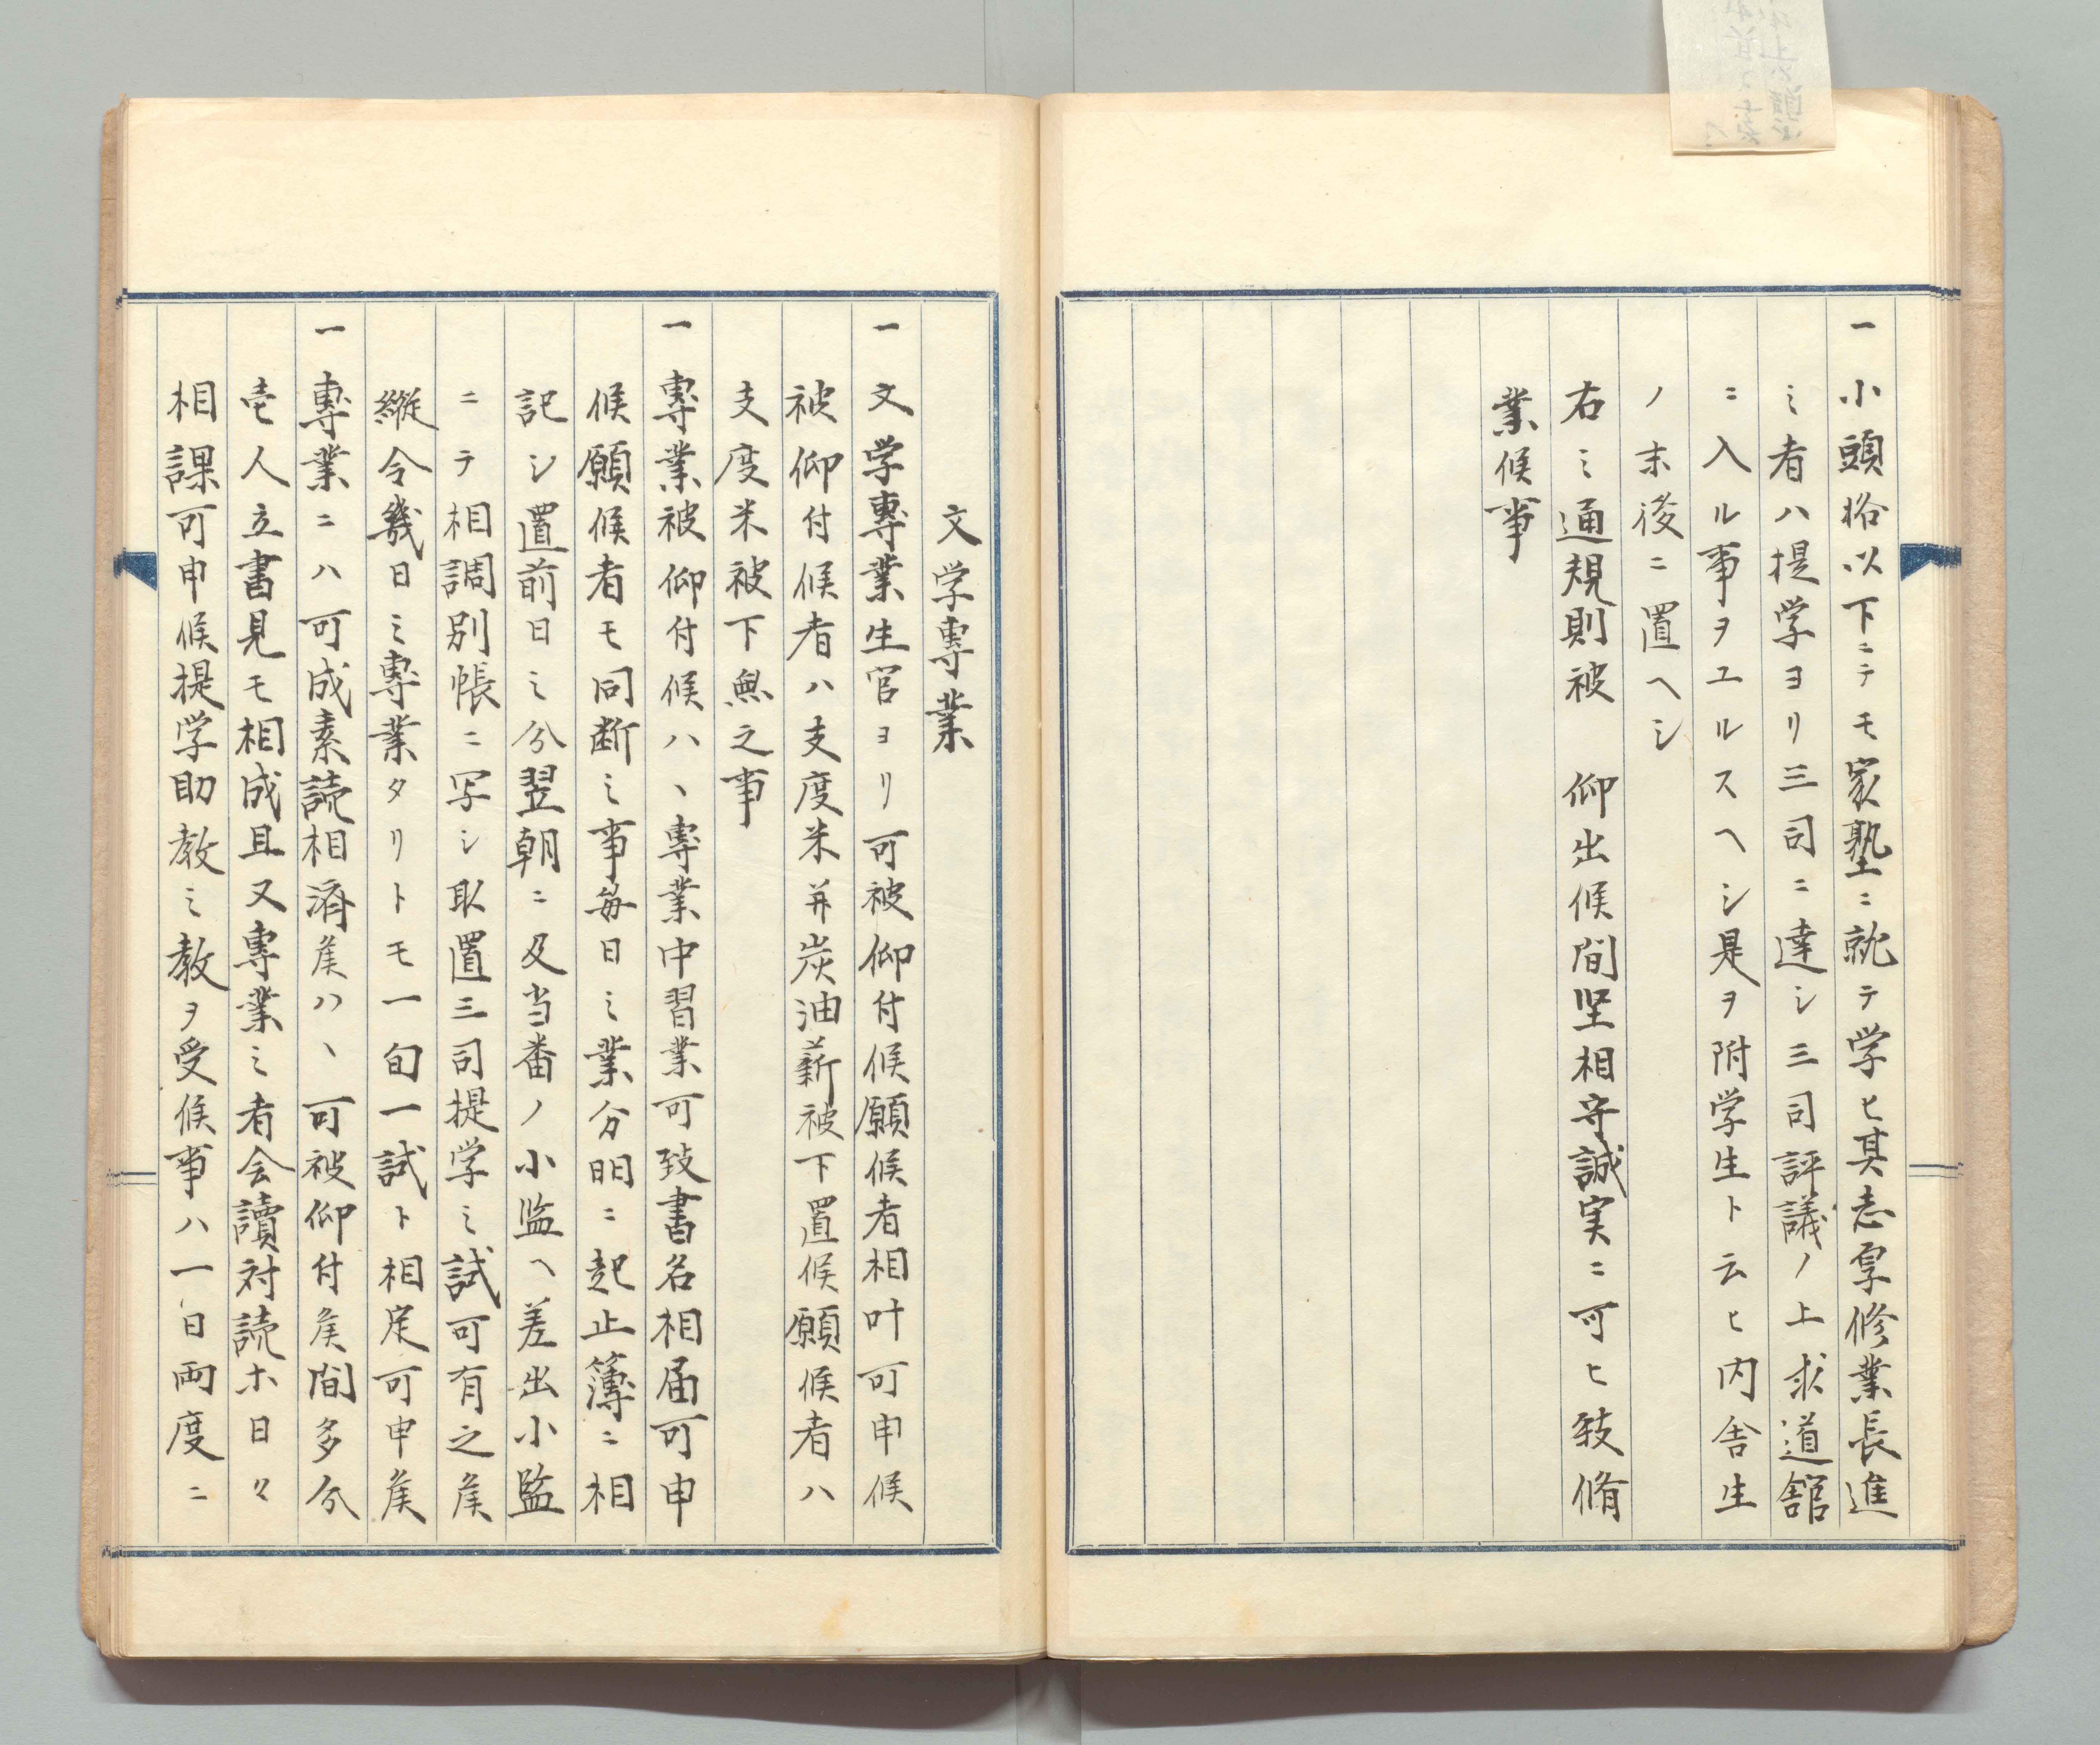 一小頭格以下ニテモ家塾ニ就テ学ヒ其志厚修業長進
ミ者ハ提学ヨリ三司ニ達シ三司評議ノ上求道舘
ニ入ル事ヲユルスヘシ是ヲ附学生ト云ヒ内舎生
ノ末後ニ置ヘシ
右ミ通規則被 仰出候間堅相守誠実ニ可ヒ致脩
業候事
文学専業
一文学専業生官ヨリ可被仰付候願候者相叶可申候
被仰付候者ハ支度米并炭油薪被下置候願候者ハ
支度米被下無之事
一専業被仰付候ハヽ専業中習業可致書名相届可申
候願候者モ同断ミ事毎日ミ業分明ニ起止簿ニ相
記シ置前日ミ分翌朝ニ及当番ノ小監ヘ差出小監
ニテ相調別帳ニ写シ取置三司提学ミ試可有之矦
縦令幾日ミ専業タリトモ一旬一試ト相定可申矦
一専業ニハ可成素読相済矦ハヽ可被仰付矦間多分
壱人立書見モ相成且又専業ミ者会讀対読ホ日々
相課可申候提学助教ミ教ヲ受候事ハ一日両度ニ